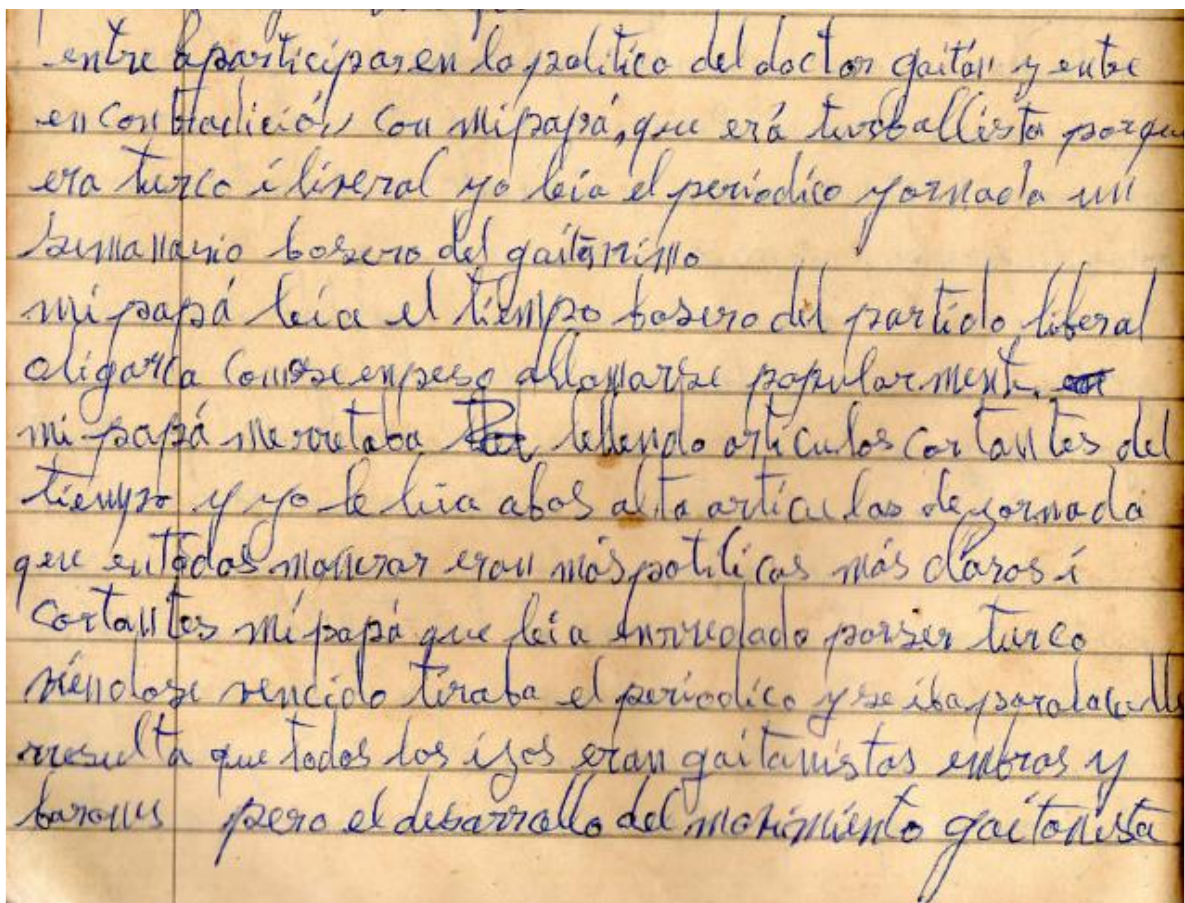 entre aparticipar en la politica del doctor gaitán y entre
en contradición con mi papá, que erá turballista porque
era turco i liveral yo leia el periodico yornada un
semanario bosero del gaitanismo
mi papá leia el tiempo bosero del partido liberal
oligarca como se enpeso allamarse popularmente.
mi papá merretaba lellendo articulos cortantes del
tiempo y yo le leia abos alta articulos de jornada
que entodas maneras eran más politicas más claros i
cortantes mi papá que leia enrredado porser turco
viendose vencido tiraba el periodico y se iba paralacalle
rresulta que todos los ijos eran gaitanistas embras y
barones pero el desarrallo del movimiento gaitanista